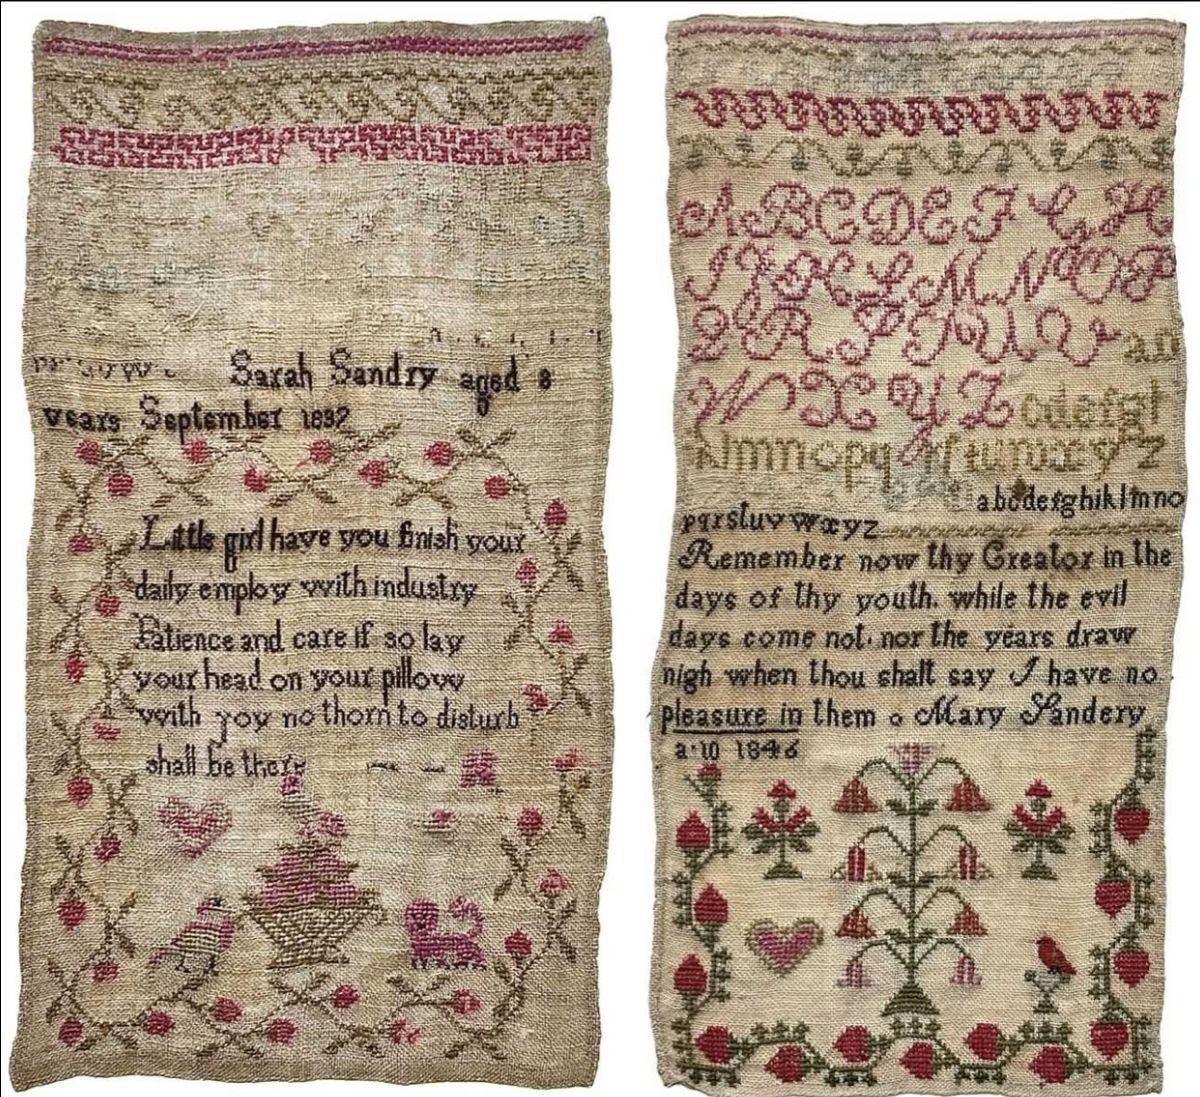 Sarah Sandry aged 8
years September 1837
Little girl have you finish your
daily employ with industry
Patience and care if so lay
your head on your pillow
with joy no thorn to disturb
shall be there
A B C D E F G H
I J K L M N O P
Q R S T U V
W X Y Z
klmnopq
abcdefghiklmno
pqrstuvwxyz
Remember now thy Creator in the
days of thy youth. while the evil
days come not. nor the years draw
nigh when thou shalt say I have no
pleasure in them o Mary Sandery
a·10 1846